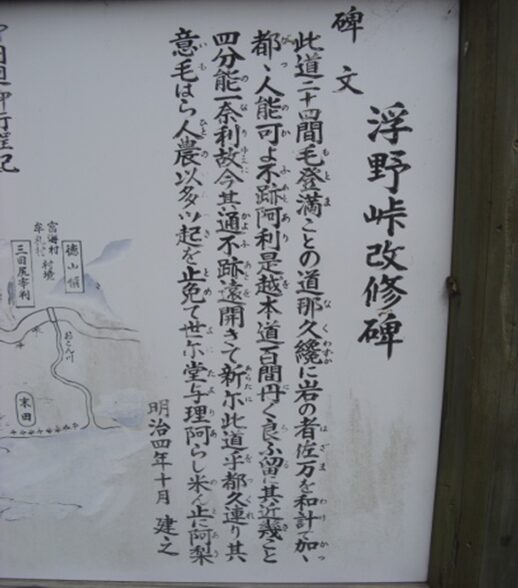 浮野峠改修碑
碑文
此道二十四間毛登満ことの道那久纔に岩の者佐万を和計て加、
都、人能可よ不跡阿利是越本道百間丹く良ふ留に其近幾こと
四分能一奈利故今其通不跡遠開きて新尓此道乎都久連り其
意毛はら人農以多ツ起を止免て世尓堂与理阿らし米ん止に阿梨
明治四年十月 建之
徳山領
宮海村
三田尻宰判
末田